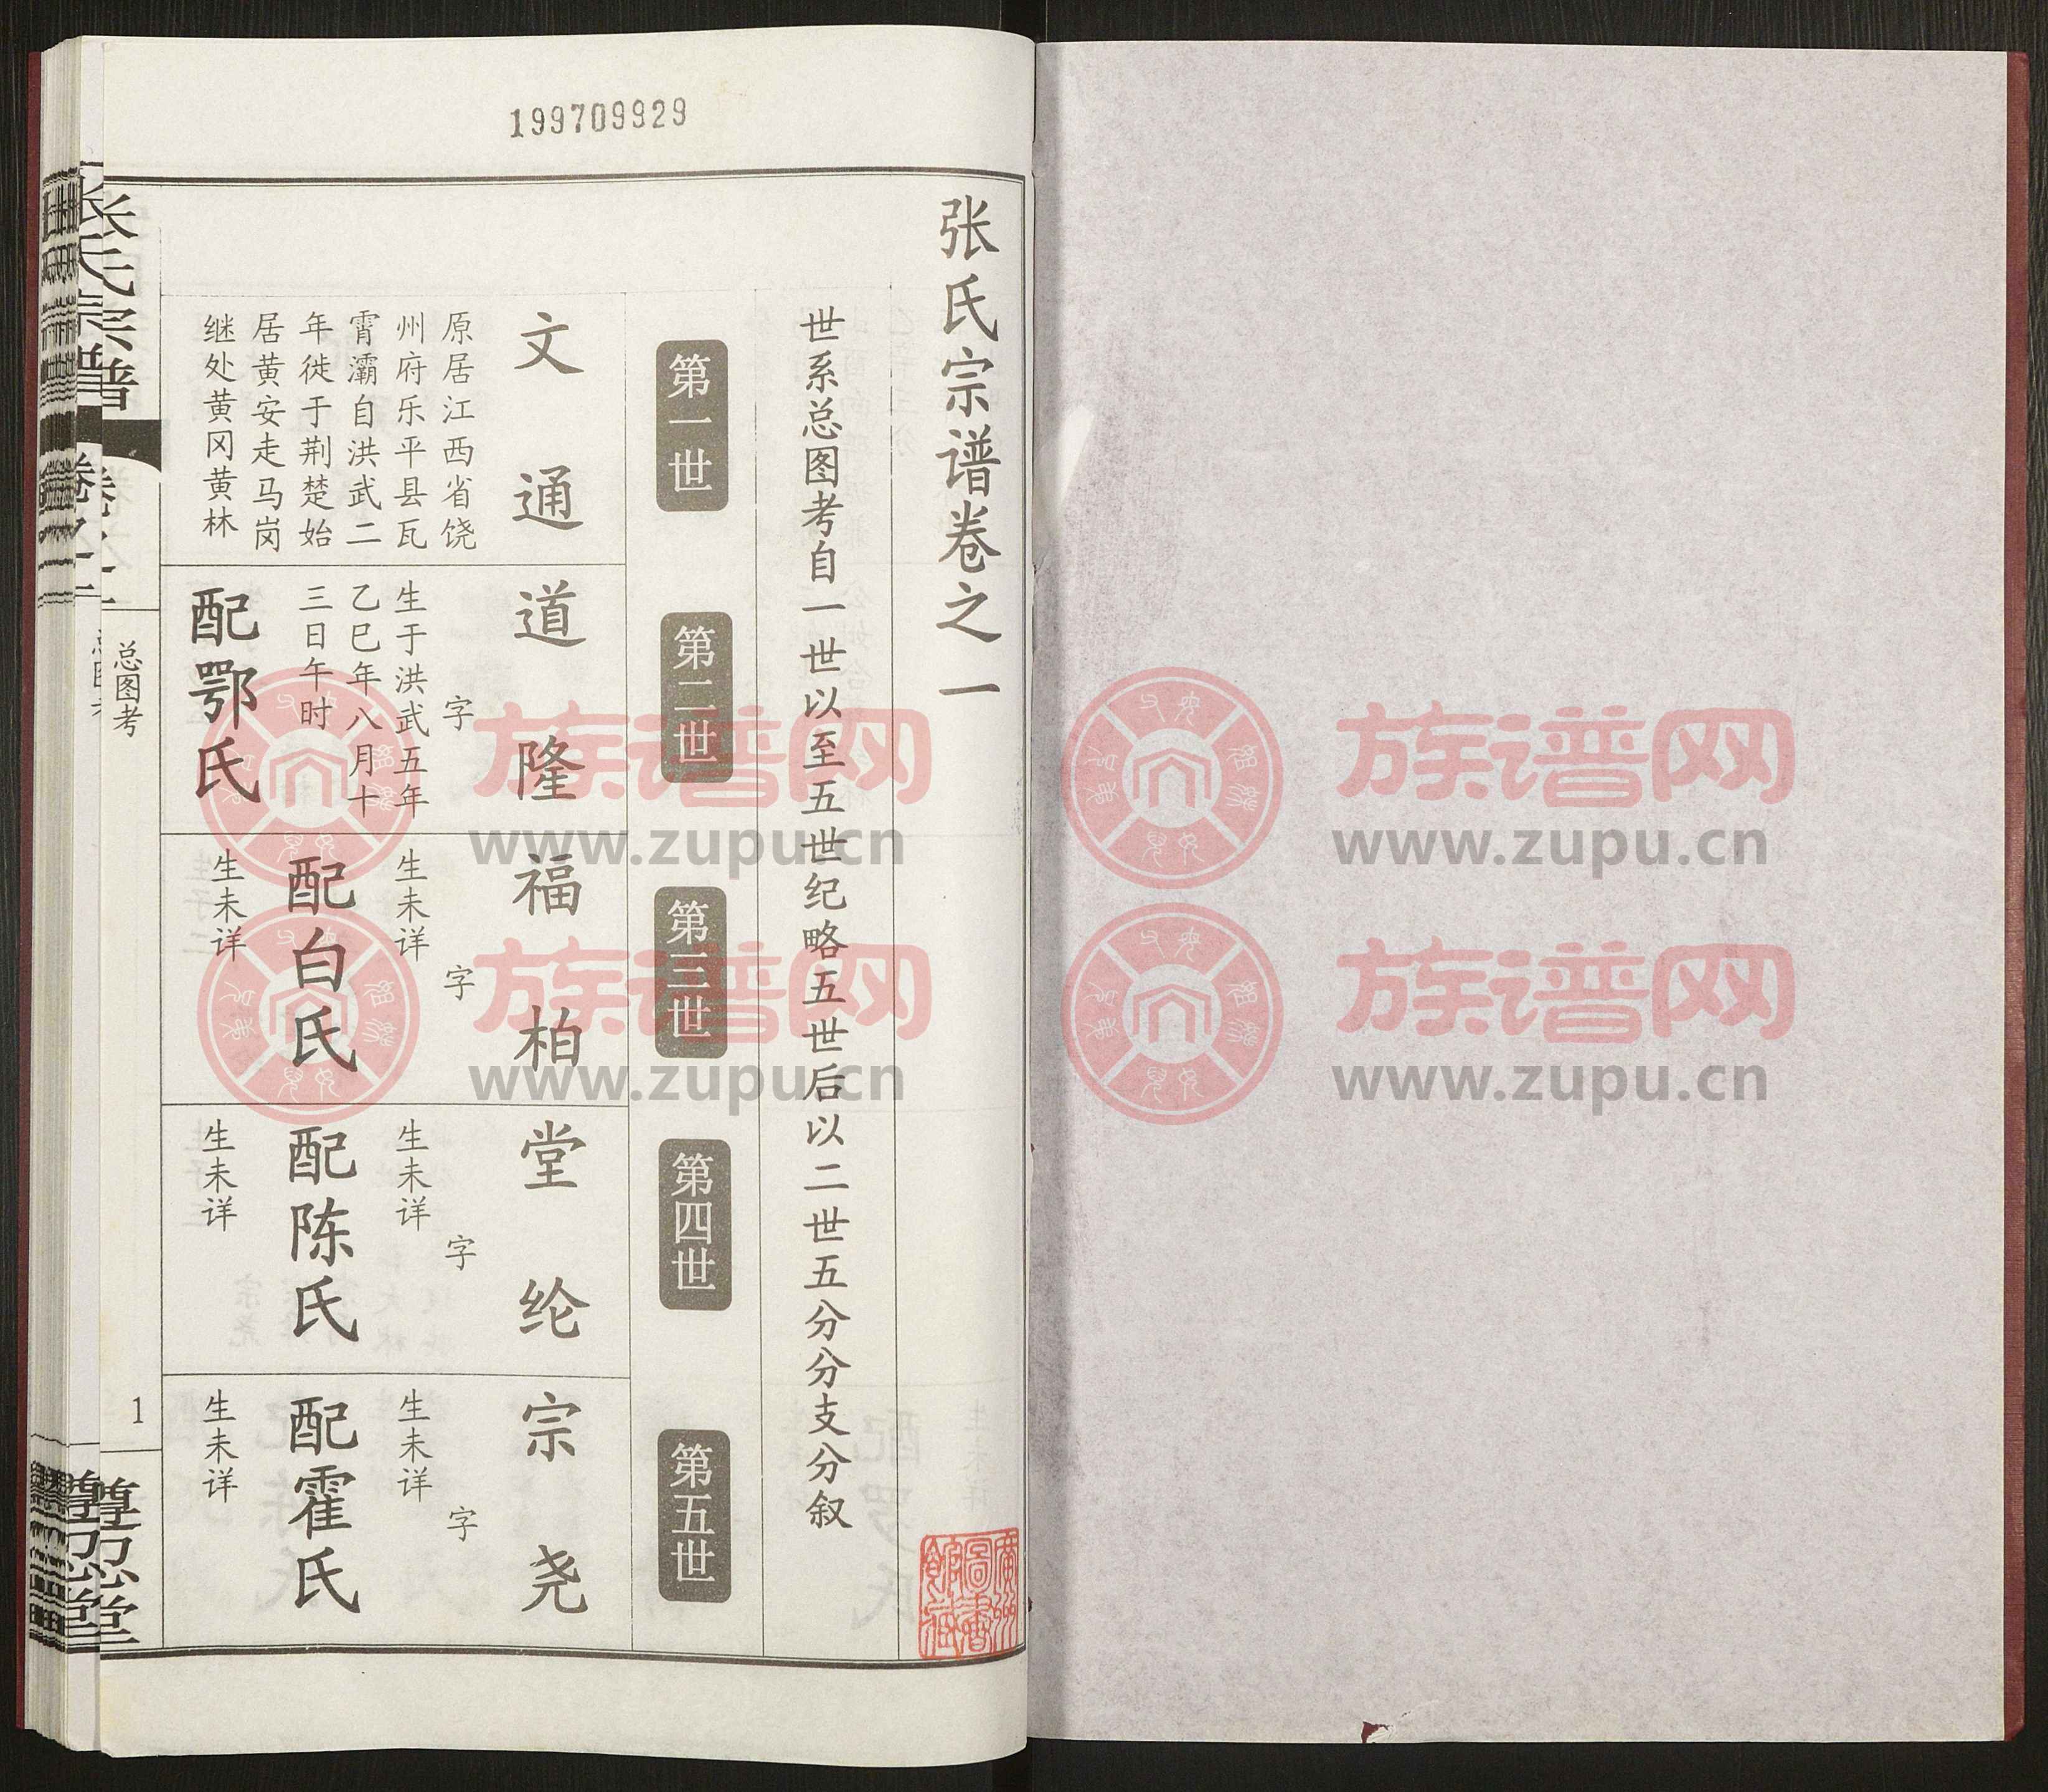 199709929
张氏宗谱卷之一
世系总图考自一世以至五世纪略五世后以二世五分分支分叙
第一世
第二世
第三世
第四世
第五世
文通
原居江西省饶
州府乐平县瓦
霄灞自洪武二
年徙于荆楚始
居黄安走马岗
继处黄冈黄林
道隆
字
生于洪武五年
乙巳年八月十
三日午时
配鄂氏
福柏
字
生未详
配白氏
生未详
堂纶
字
生未详
配陈氏
生未详
宗尧
字
生未详
配霍氏
生未详
张氏宗谱
卷之一
总图考
1
廣州
圖書
館藏
族谱网
www.zupu.cn
族谱网
www.zupu.cn
族谱网
www.zupu.cn
族谱网
www.zupu.cn